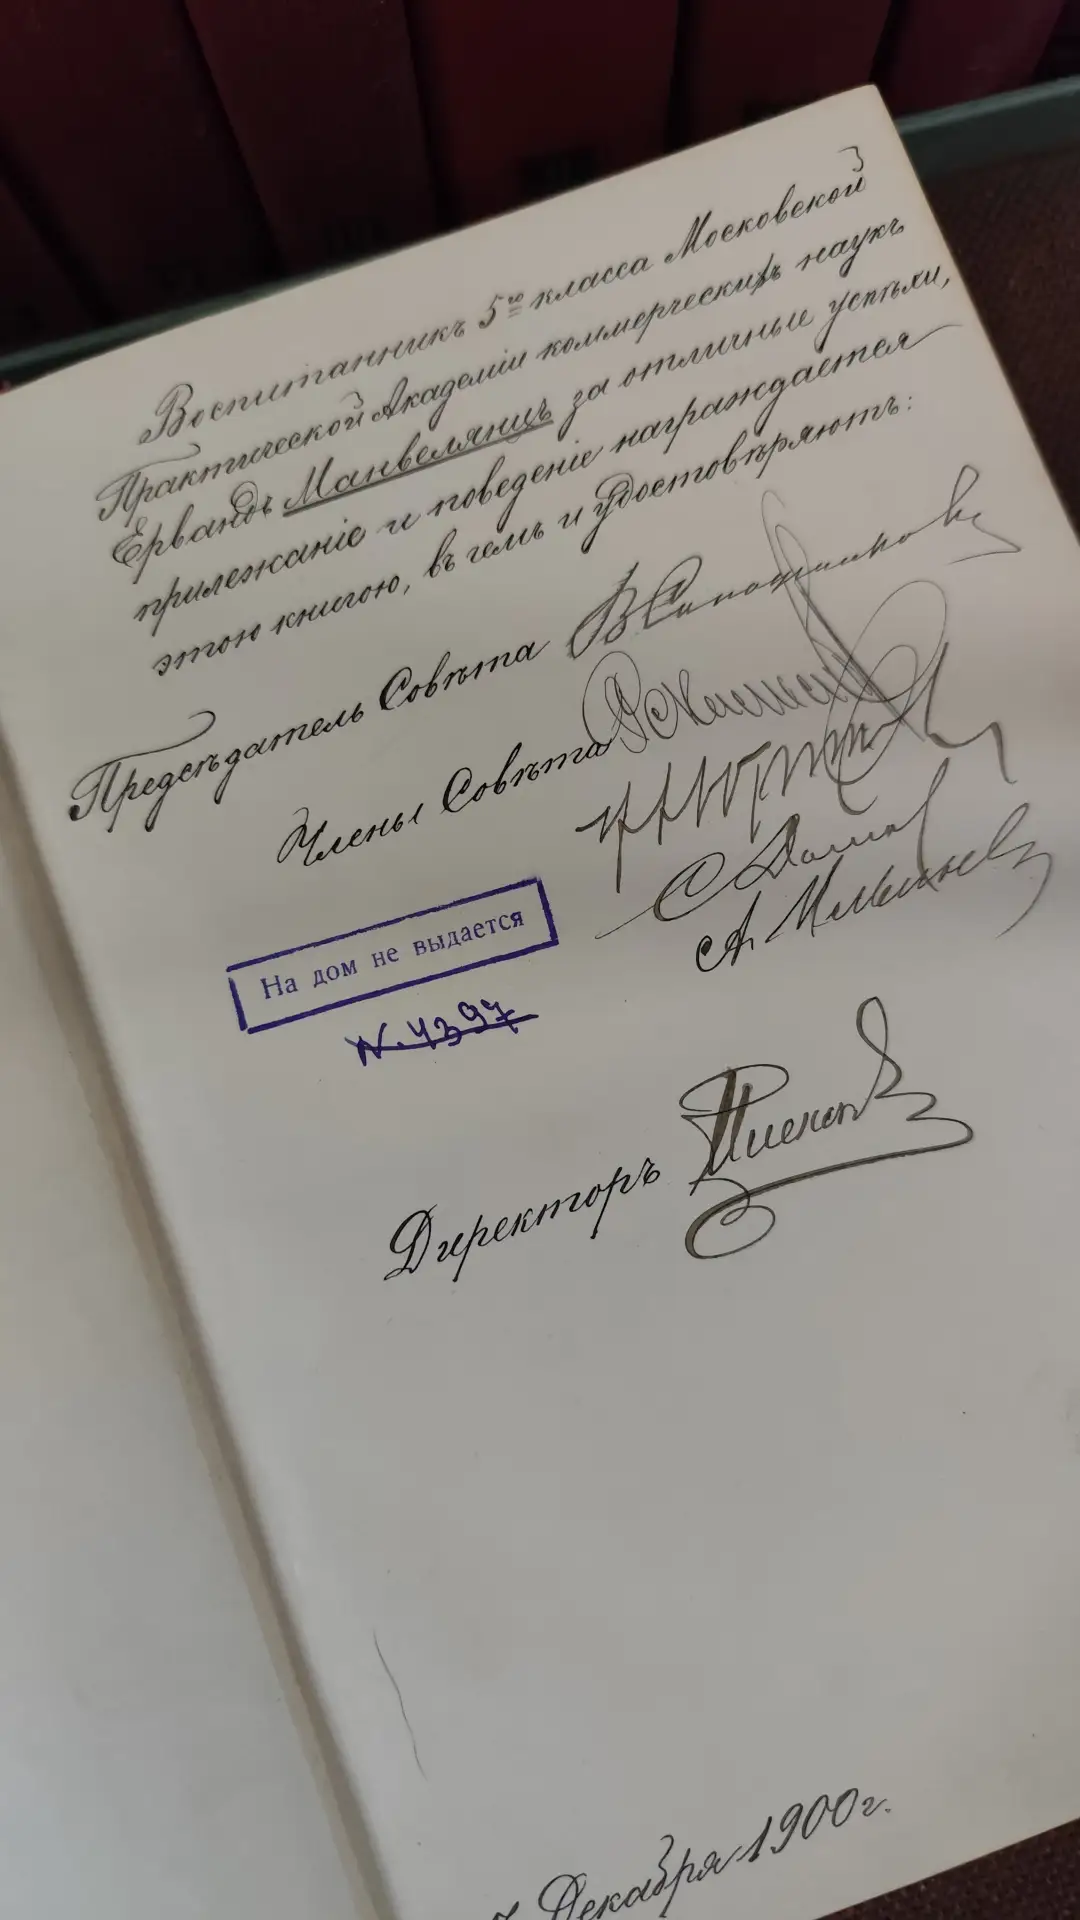 Воспитанникъ 5го класса Московской
Практической Академіи коммерческихъ наукъ
Ервандъ Манвелянцъ за отличные успѣхи,
прилежаніе и поведеніе награждается
этою книгою, въ чемъ и удостовѣряютъ:
Предсѣдатель Совѣта
Члены Совѣта
На дом не выдается
N. 4397
Директоръ
Декабря 1900 г.